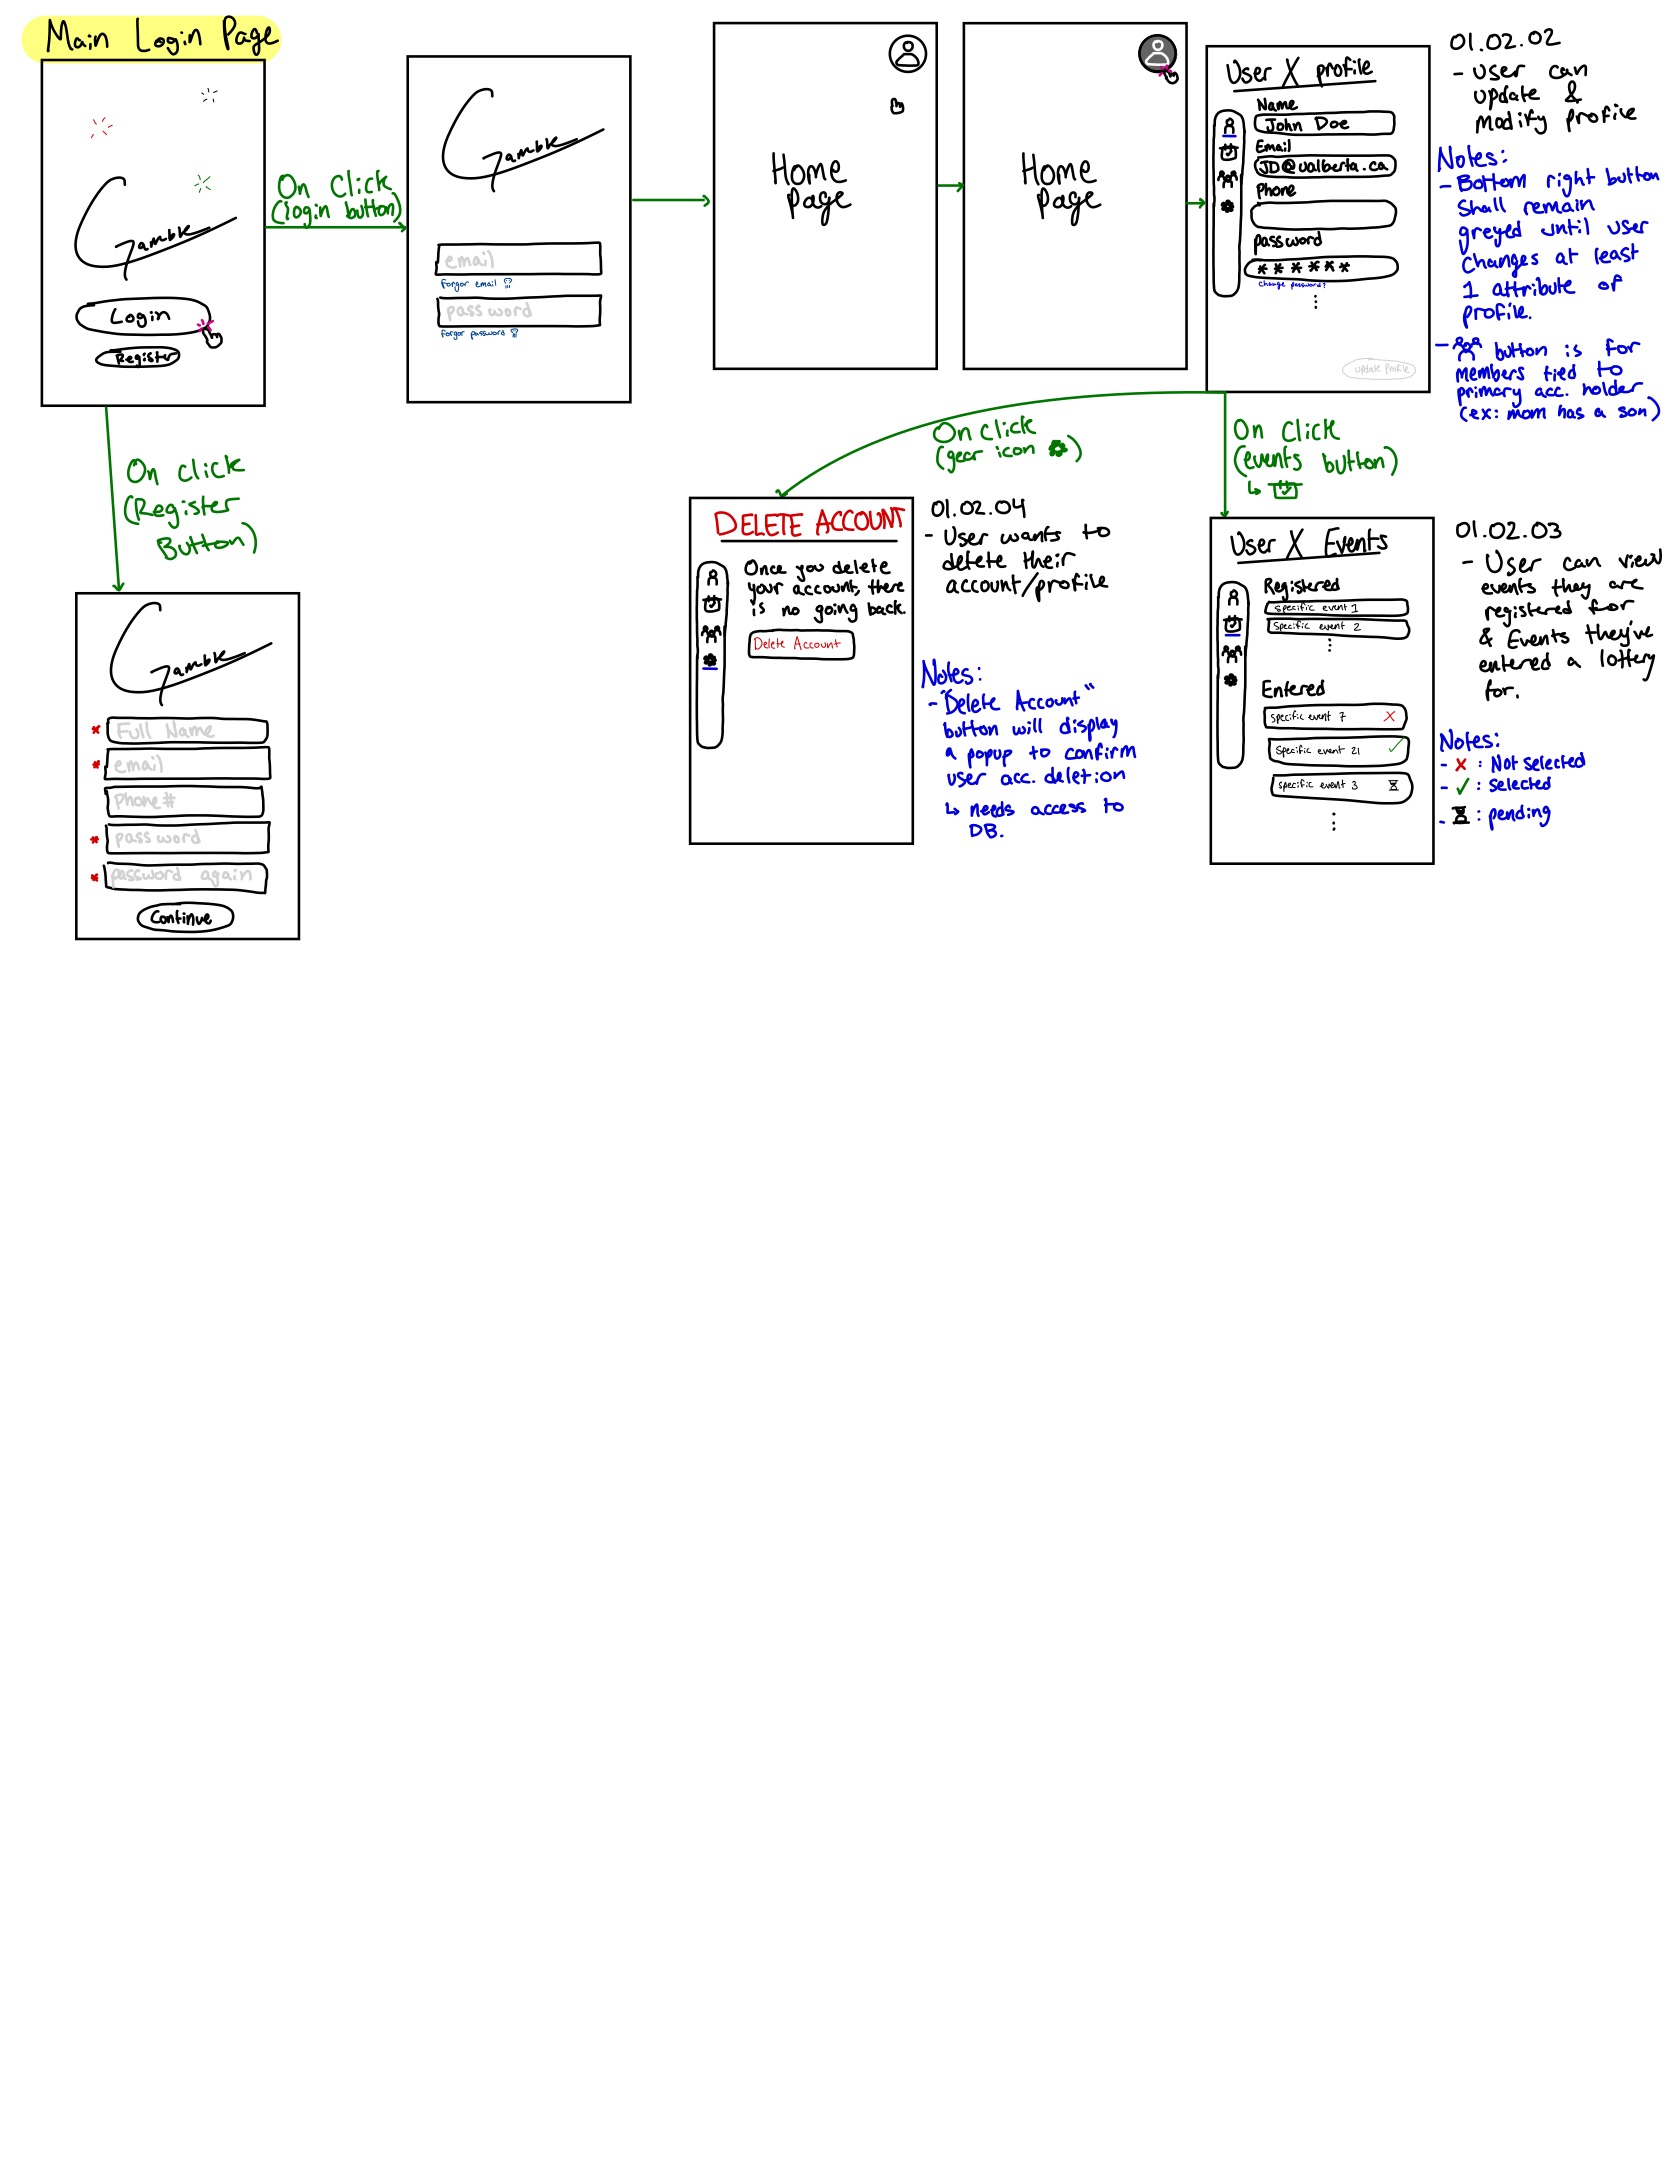 Main Login Page
Gamble
Login
Register
On Click
(login button)
Gamble
email
forgor email
password
forgor password
Home
Page
Home
Page
User X profile
Name
John Doe
Email
JD@ualberta.ca
Phone
password
******
change password?
update Profile
01.02.02
- user can
update &
Modify profile
Notes:
- Bottom right button
shall remain
greyed until user
changes at least
1 attribute of
profile.
- button is for
members tied to
primary acc. holder
(ex: mom has a son)
On click
(Register
Button)
Gamble
* Full Name
* email
Phone#
* password
* password again
Continue
On click
(gear icon )
DELETE ACCOUNT
Once you delete
your account, there
is no going back.
Delete Account
01.02.04
- User wants to
delete their
account/profile
Notes:
- "Delete Account"
button will display
a popup to confirm
user acc. deletion
↳ needs access to
DB.
On Click
(events button)
↳
User X Events
Registered
specific event 1
specific event 2
Entered
specific event 7
specific event 21
specific event 3
01.02.03
- User can view
events they are
registered for
& Events they've
entered a lottery
for.
Notes:
- x : Not selected
- ✓ : selected
- ⌛ : pending